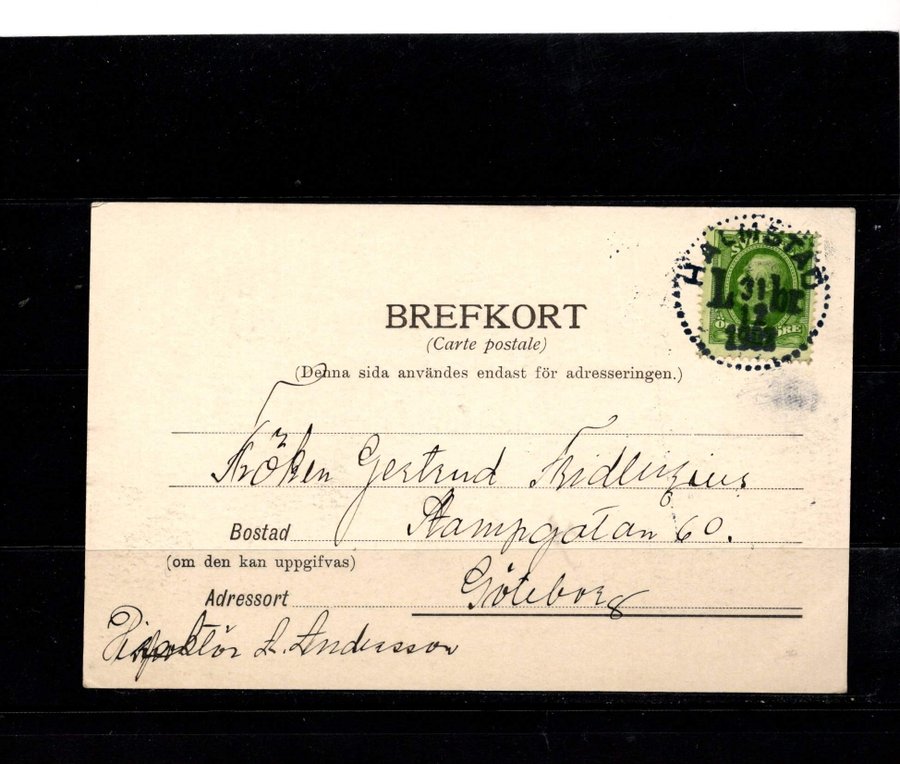 HALMSTAD
L. 31 br.
12
SVE
ÖRE
BREFKORT
(Carte postale)
(Denna sida användes endast för adresseringen.)
Fröken Gertrud
Bostad Stampgatan 60.
(om den kan uppgifvas)
Adressort Göteborg
A. Andersson